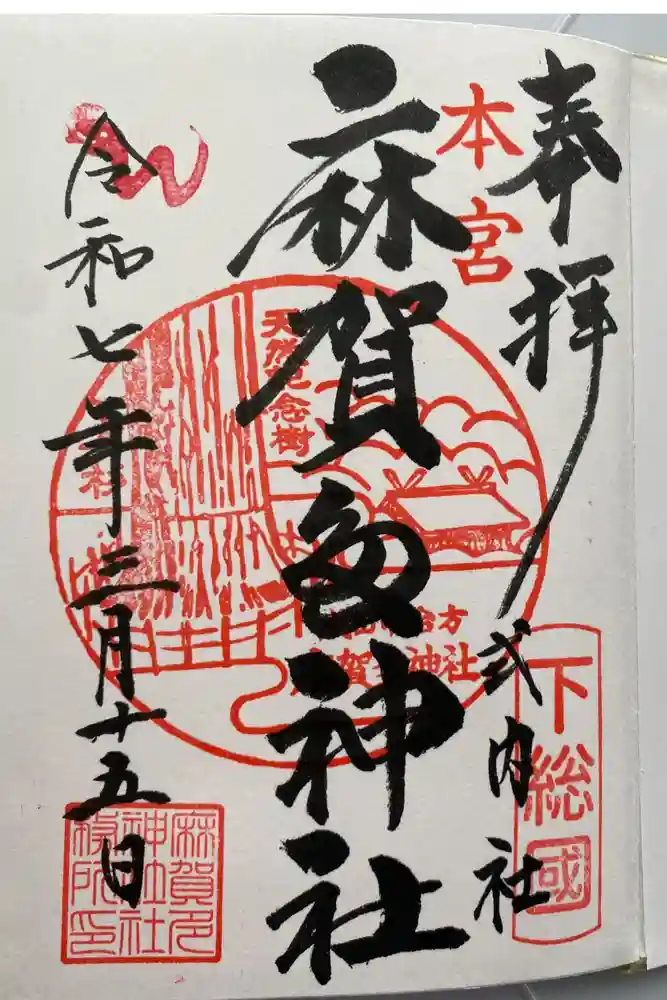 奉拝
本宮
式内社
下総國
麻賀多神社
天然記念樹
賀 神社
令和七年三月十五日
麻賀多
神社社
務所印